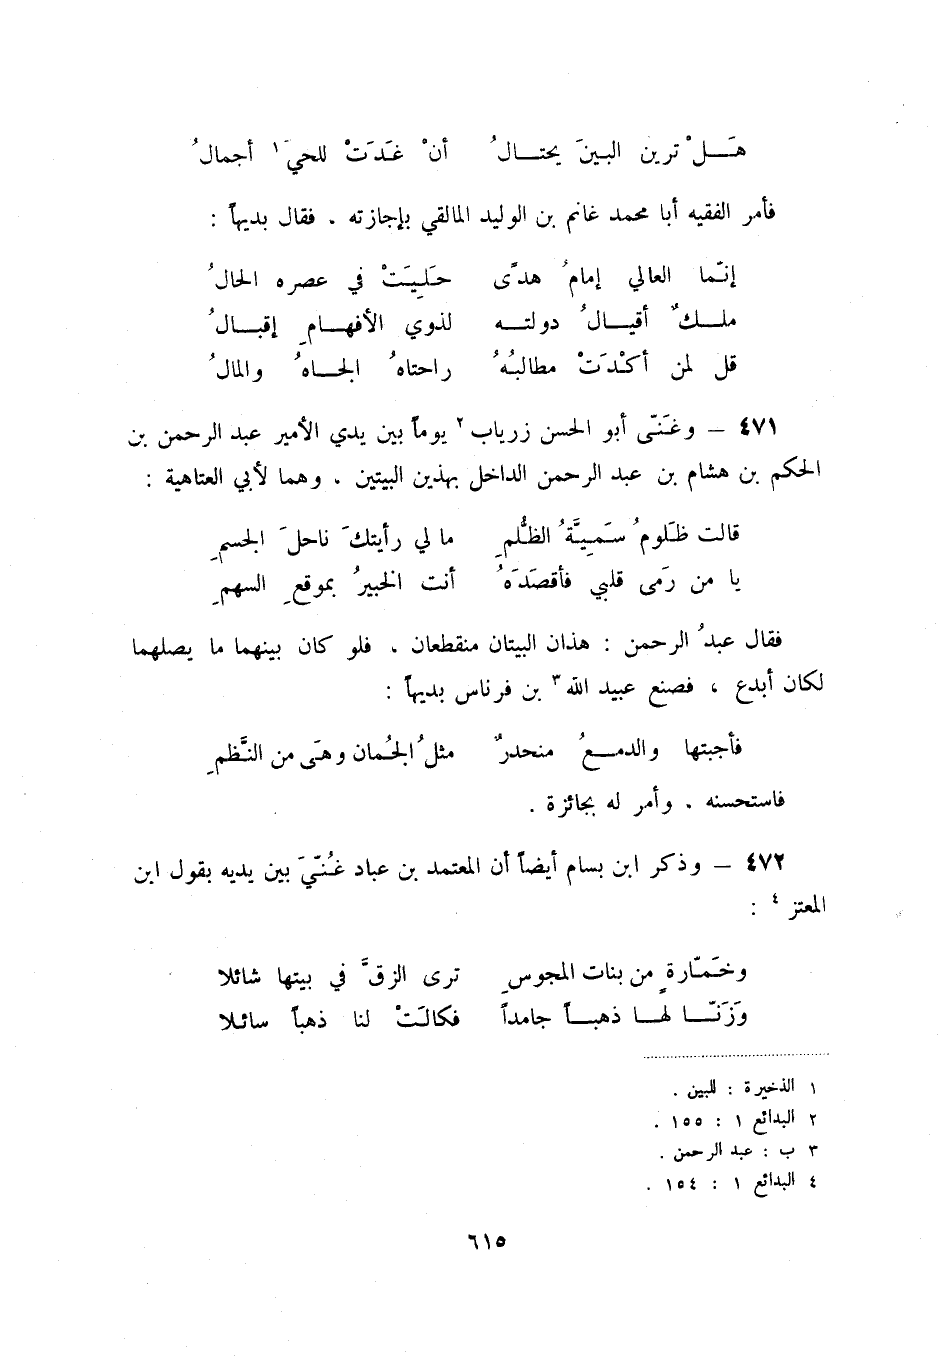 هَـــلْ ترين البينَ يحتـــالُ   أنْ غَدَتْ للحيَ١ أجمالُ
فأمر الفقيه أبا محمد غانم بن الوليد المالقي بإجازته . فقال بديهاً :
إنّما العالي إمامُ هدًى   حَلِيَتْ في عصره الحالُ
ملــكٌ أقيــالُ دولتــه   لذوي الأفهــامِ إقبــالُ
قل لمن أكْدَتْ مطالبُهُ   راحتاهُ الجــاهُ والمالُ
٤٧١ – وغَنّى أبو الحسن زرياب ٢ يوماً بين يدي الأمير عبد الرحمن بن
الحكم بن هشام بن عبد الرحمن الداخل بهذين البيتين . وهما لأبي العتاهية :
قالت ظَلومُ سَمِيَّةُ الظُّلمِ   ما لي رأيتكَ ناحلَ الجسمِ
يا من رَمى قلبي فأقصَدَهُ   أنت الخبيرُ بموقعِ السهمِ
فقال عبدُ الرحمن : هذان البيتان منقطعان . فلو كان بينهما ما يصلهما
لكان أبدع ، فصنع عبيد الله ٣ بن فرناس بديهاً :
فأجبتها والدمــعُ منحدرٌ   مثلُ الجُمان وهَى من النَّظمِ
فاستحسنه . وأمر له بجائزة .
٤٧٢ – وذكر ابن بسام أيضاً أن المعتمد بن عباد غُنّيَ بين يديه بقول ابن
المعتز ٤ :
وخَمّارةٍ من بنات المجوسِ   ترى الزقَّ في بيتها شائلا
وَزَنّــا لهــا ذهبــاً جامداً   فكالَتْ لنا ذهباً سائلا
١ الذخيرة : للبين .
٢ البدائع ١ : ١٥٥ .
٣ ب : عبد الرحمن .
٤ البدائع ١ : ١٥٤ .
٦١٥